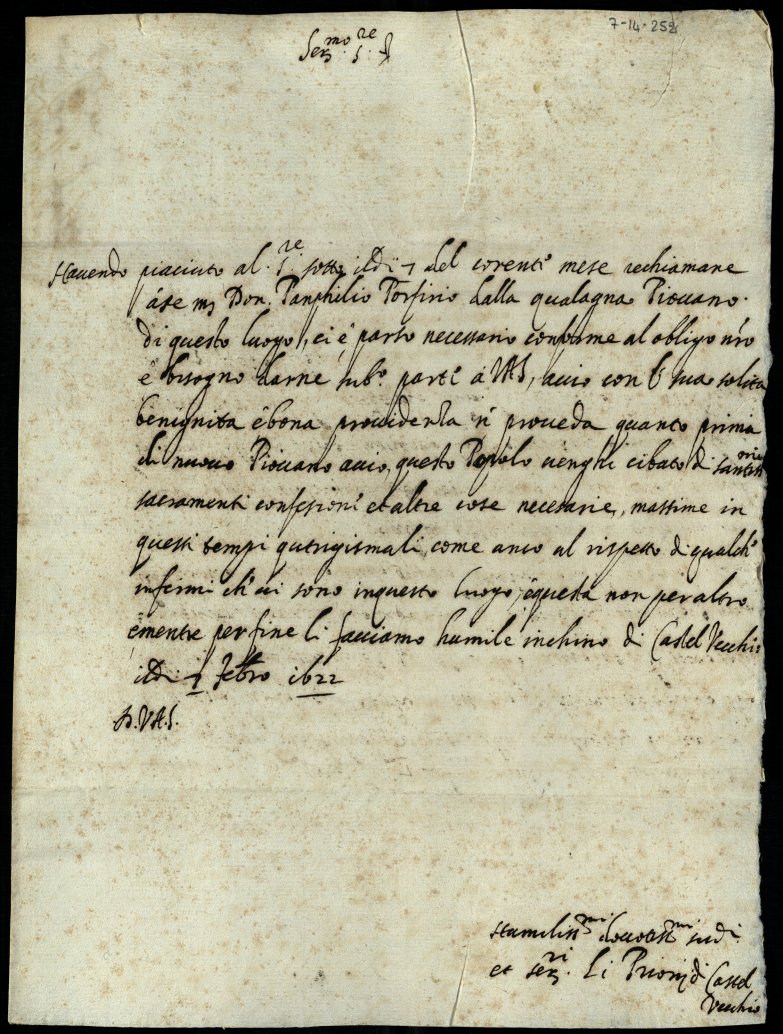 7-14-252
Ser.mo S.re
Havendo piaciuto al S.re sotto il dì 7 del corente mese rechiamare
àse m Don. Panphilio Porfirio dalla qualagna Piovano
di questo luogo, ci è parso necessario conforme al obligo n'ro
è bisogno darne sub.o parte à VAS, acciò con la sua solita
benignità è bona providenza si proveda quanto prima
di nuovo Piovano acciò questo Popolo venghi cibato di santissi
sacramenti confesioni et altre cose necesarie, massime in
questi tempi come anco al rispetto di qualche
infermi che ci sono in questo luogo, è questa non per altro
ementre per fine li facciamo humile inchino di Castel Vecchio
il dì 7 Febro 1622
D.VAS.
Humiliss.mi devotiss.mi sudi
et ser.ri Li Priori di Castel
Vecchio